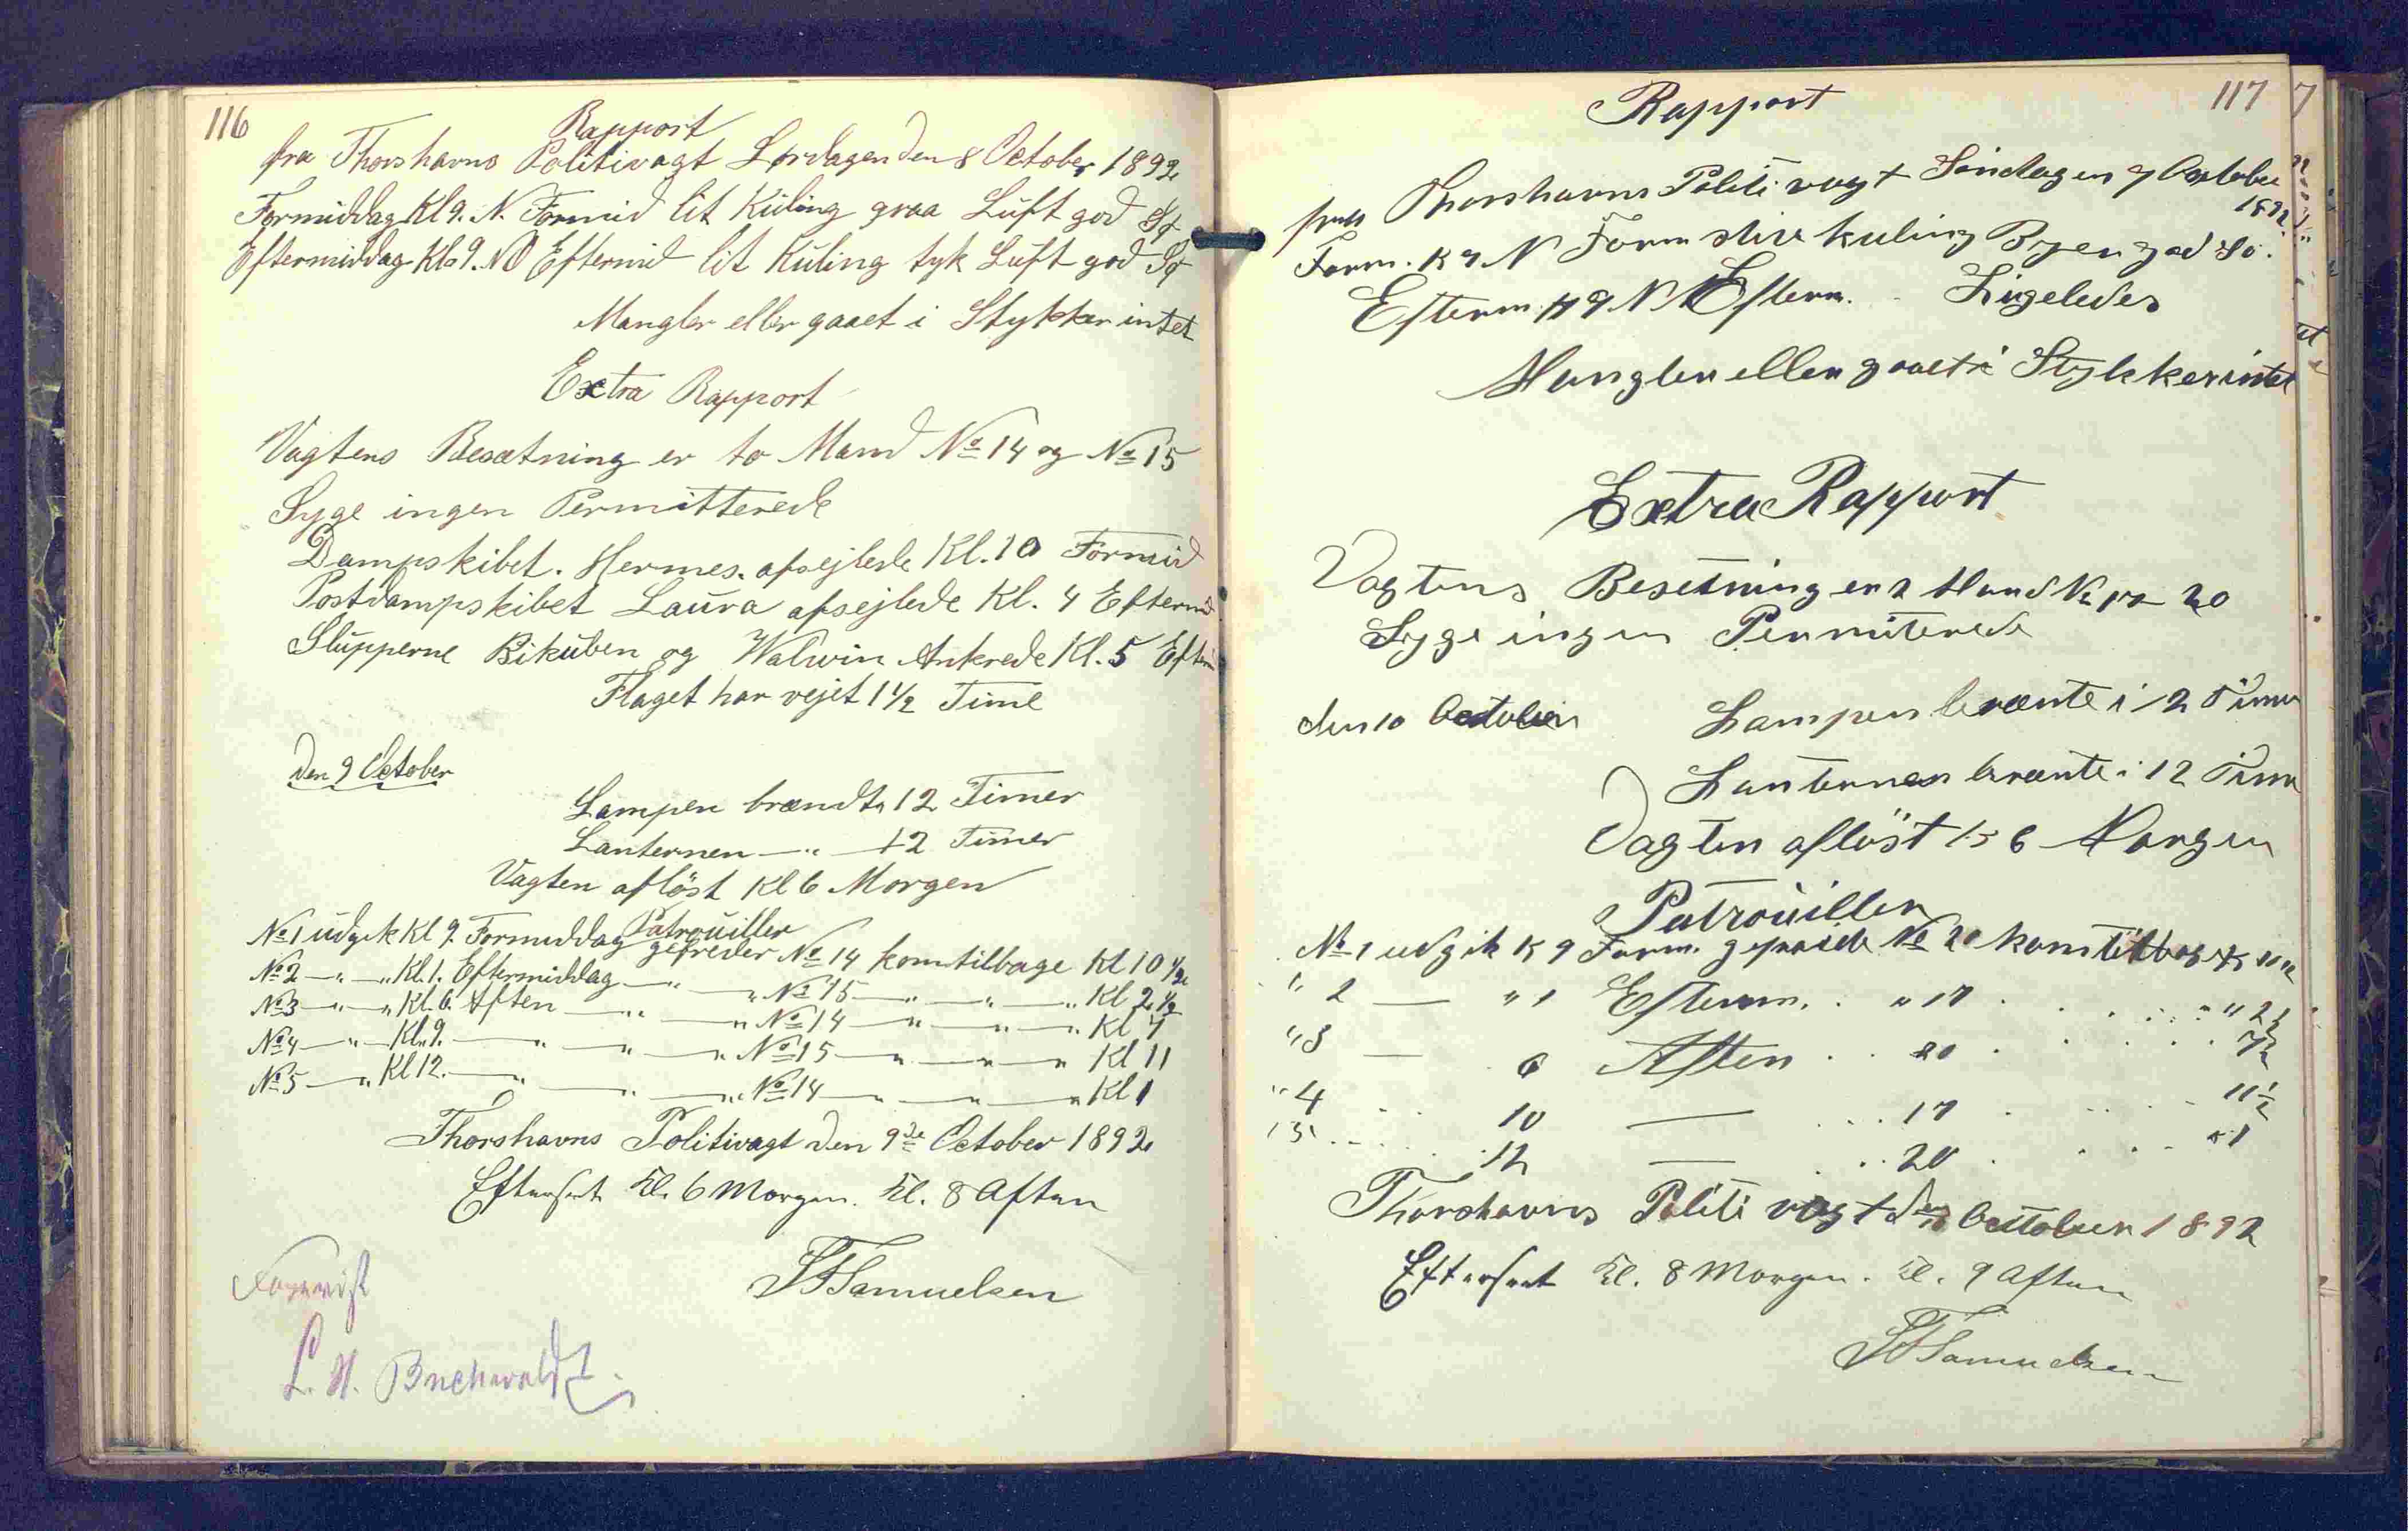 116
Rapport
fra Thorshavns Politivagt Lørdagen den 8 October 1892
Formiddag Kl 9. N. Formid lit Kuling graa Luft god Sø
Eftermiddag Kl 9. NO Eftermid lit Kuling tyk Luft god Sø
Mangler eller gaaet i Stykker intet
Extra Rapport
Vagtens Besætning er to Mand № 14 og № 15
Syge ingen Permitterede
Dampskibet. Hermes. afsejlede Kl. 10 Formid
Postdampskibet Laura afsejlede Kl. 4 Eftermid
Slupperne Bikuben og Walwin Ankrede Kl. 5 Efterm
Flaget har vejet 1 1/2 Time
den 9 October
Lampen brændte 12 Timer
Lanternen —"— 12 Timer
Vagten afløst Kl 6 Morgen
Patrouiller
№ 1 udgik Kl 9 Formiddag gefreder № 14 kom tilbage Kl 10 1/2
№ 2 —"—" Kl. 1. Eftermiddag —"— " № 15 —"—"—" Kl 2 1/2
№ 3 —"—" Kl. 6. Aften —"—" № 14 —"—"—" Kl 7
№ 4 —"— Kl. 9. —"—"—" № 15 —"—"—" Kl 11
№ 5 —" Kl 12. —"—"—" № 14 —"—"—" Kl 1
Thorshavns Politivagt den 9de October 1892
Efterseet Kl. 6 Morgen. Kl. 8 Aften
Samuelsen
L. H. Buchwaldt.
117
Rapport
Thorshavns Politi vagt Søndagen 9 October
1892.
Form. K 9 N Form stive kuling Byen god Sö.
Efterm K 9 N Efterm. Ligeledes
Mangler eller gaaet i Stykker intet
Extra Rapport
Vagtens Besetning er 2 Mand № 17 20
Syge ingen Permiterede
den 10 October Lampen brænte i 12 Timer
Lanternen brænte i 12 Timer
Vagten aflöst K 6 Morgen
Patrouiller
№ 1 udgik K 9 Form. gefreide № 20 kom tilbag K 10 1/2
" 2 — " 1 Efterm. . " 17 . . . . " 2 1/2
" 3 — 6 Aften . . 20 . . . . 7 1/2
" 4 . . 10 — . . 17 . . . . 11 1/2
" 5 . . 12 — . . 20 . . . . 1
Thorshavns Politi vagt den 10 October 1892
Efterseet Kl. 8 Morgen. Kl. 9 Aften
Samuelsen